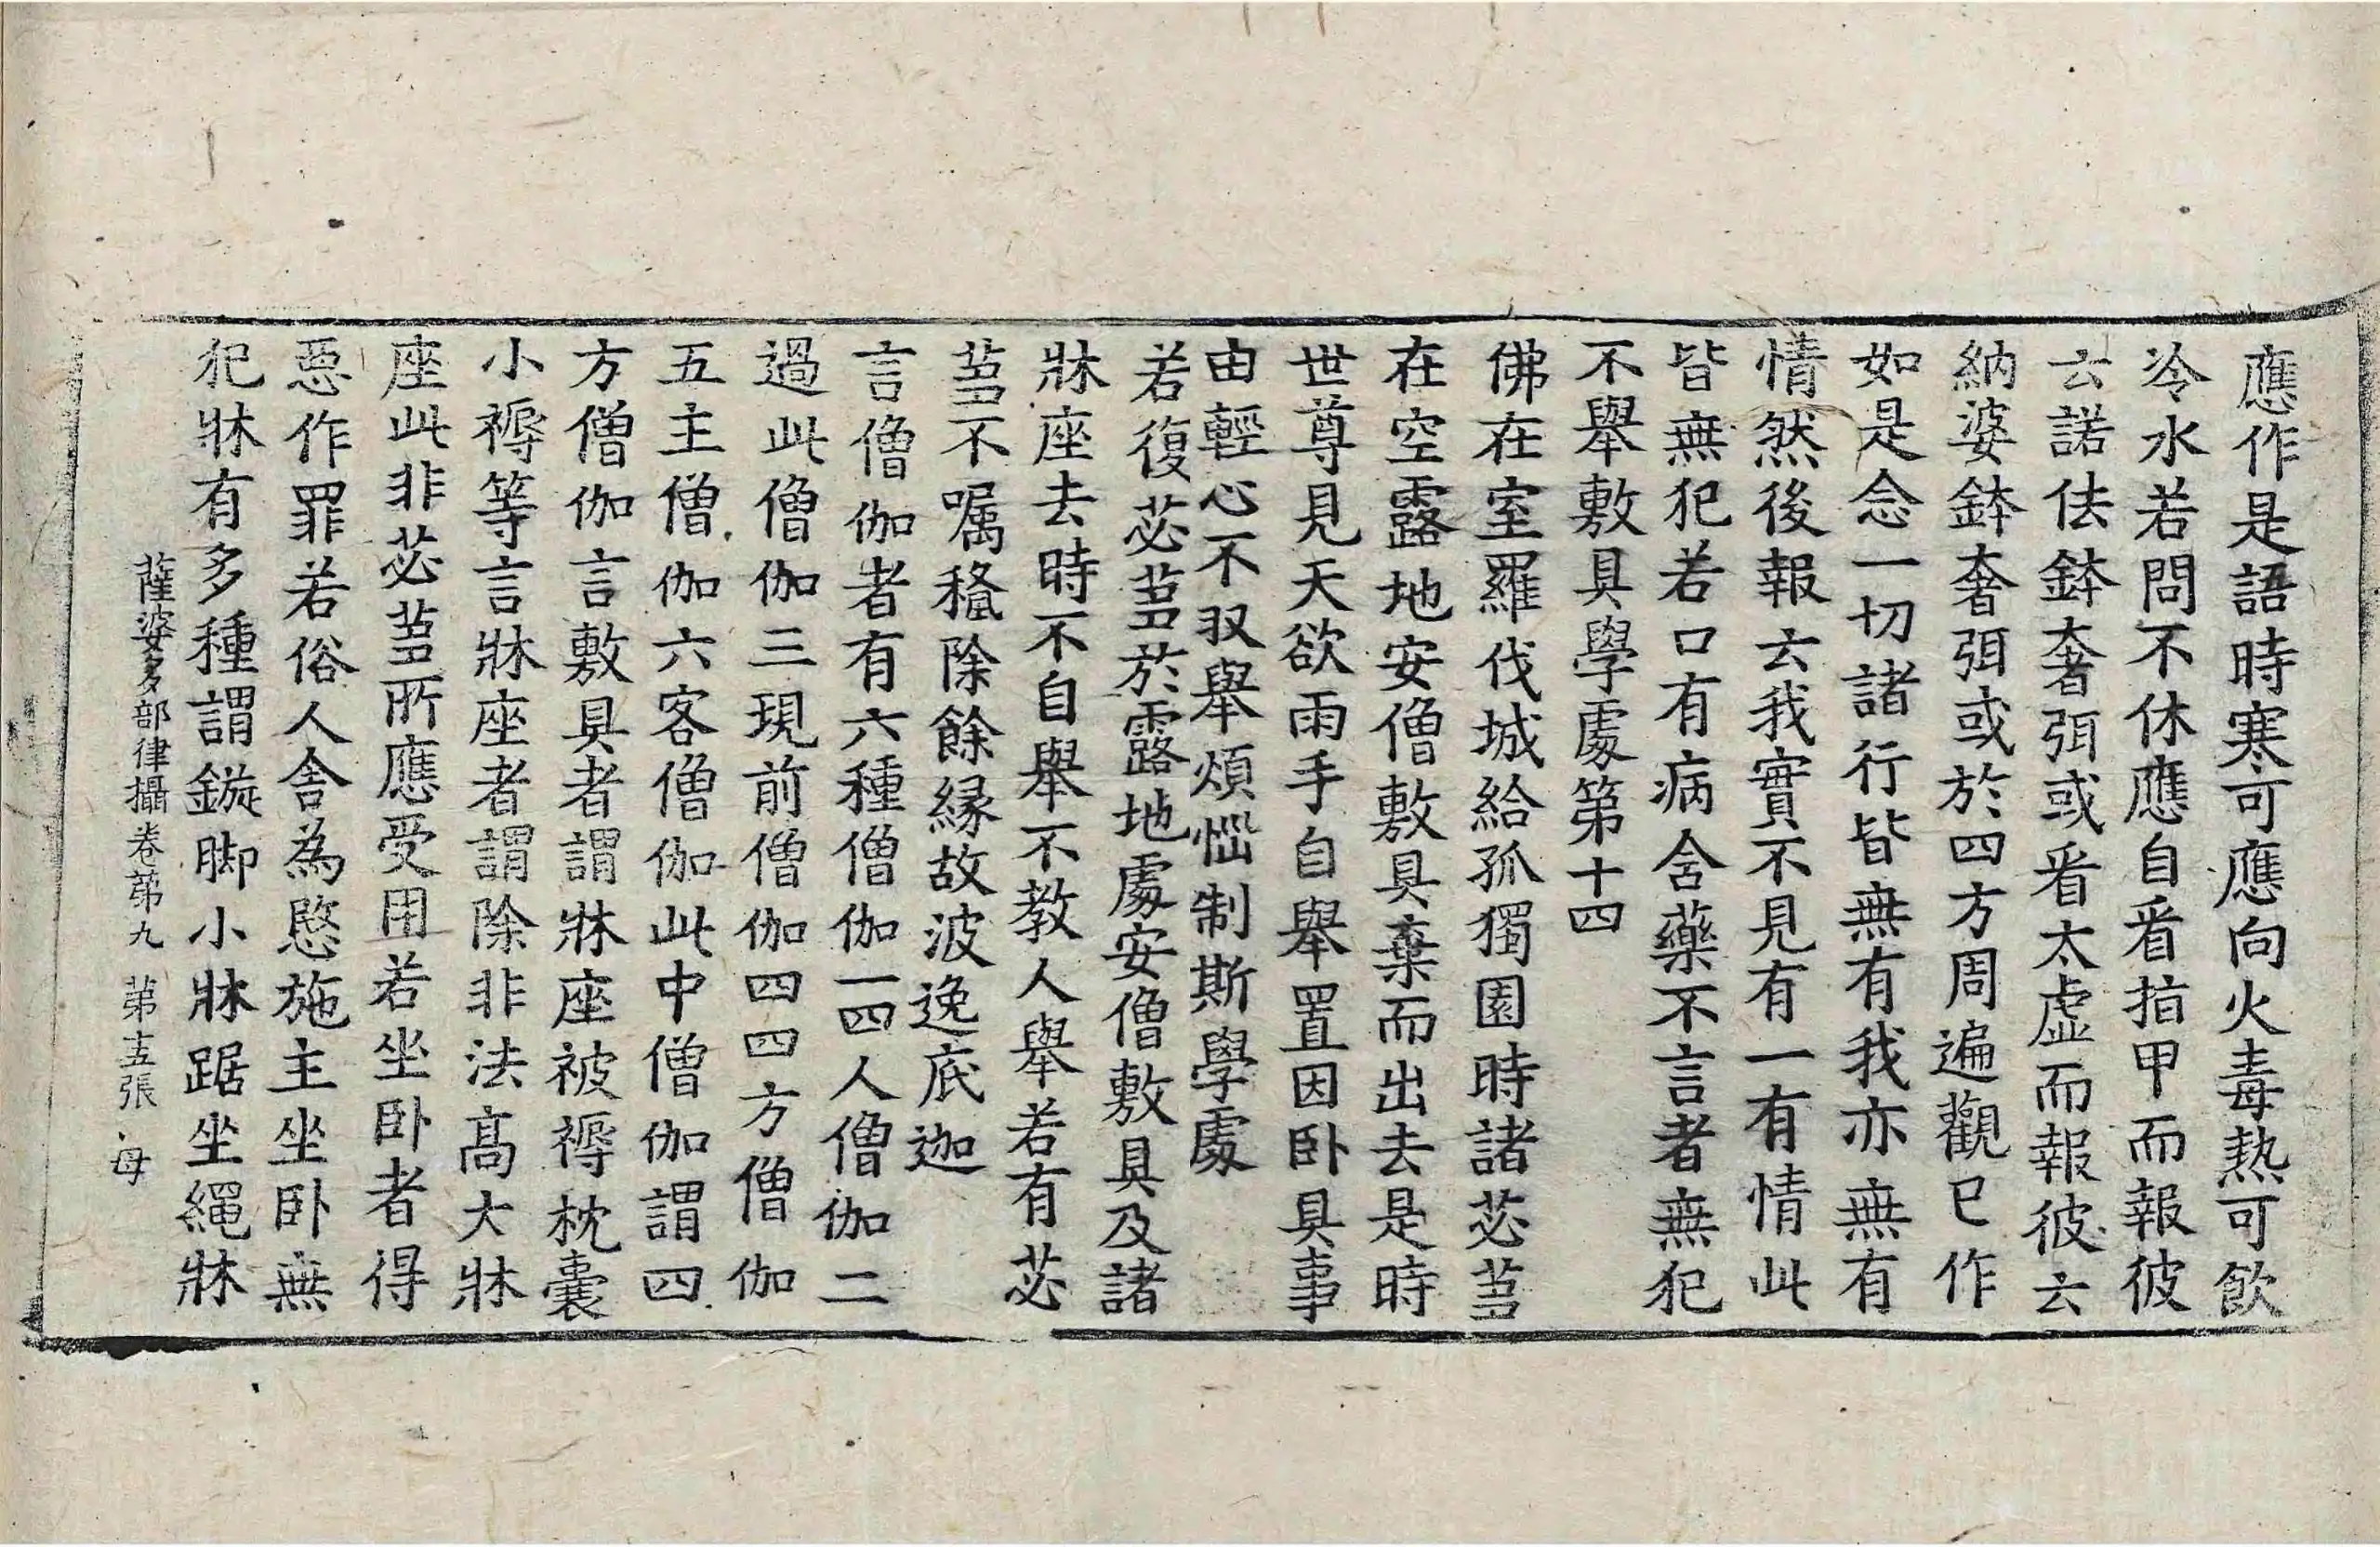 應作是語時寒可應向火毒熱可飲
冷水若問不休應自看指甲而報彼
云諾佉鉢奢弭或看太虛而報彼云
納婆鉢奢弭或於四方周遍觀已作
如是念一切諸行皆無有我亦無有
情然後報云我實不見有一有情此
皆無犯若口有病含藥不言者無犯
不舉敷具學處第十四
佛在室羅伐城給孤獨園時諸苾芻
在空露地安僧敷具棄而出去是時
世尊見天欲雨手自舉置因卧具事
由輕心不収舉煩惱制斯學處
若復苾芻於露地處安僧敷具及諸
牀座去時不自舉不教人舉若有苾
芻不囑稳除餘緣故波逸底迦
言僧伽者有六種僧伽一四人僧伽二
過此僧伽三現前僧伽四四方僧伽
五主僧伽六客僧伽此中僧伽謂四
方僧伽言敷具者謂牀座被褥枕囊
小褥等言牀座者謂除非法高大牀
座此非苾芻所應受用若坐卧者得
惡作罪若俗人舍為愍施主坐卧無
犯牀有多種謂鏇脚小牀踞坐繩牀
薩婆多部律攝卷第九 第十五張 母